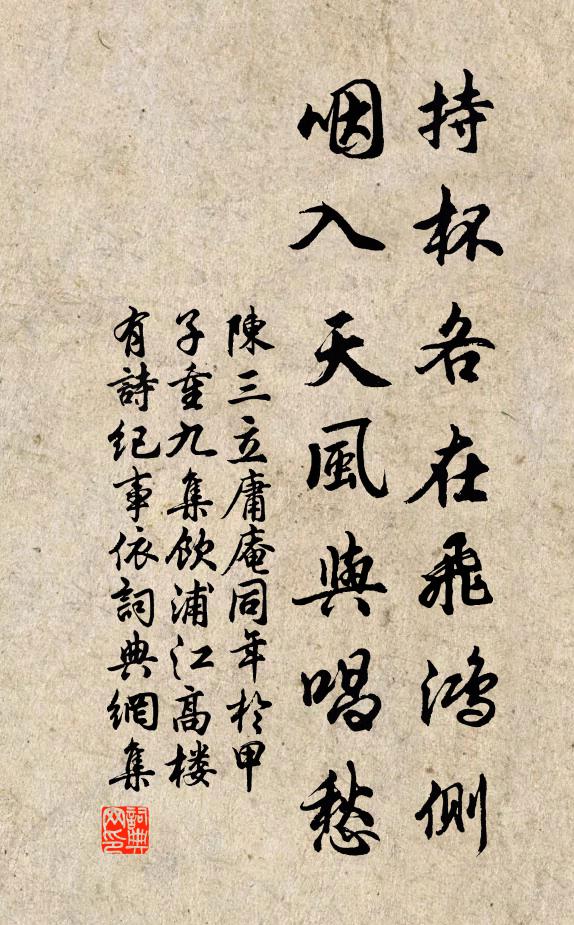 持杯各在飛鴻側
咽入天風與唱愁
陳三立庸庵同年於甲
子重九集飲浦江高楼
有詩纪事依詞典網集
詞典網印